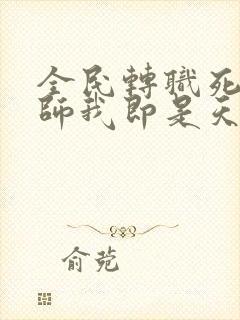 全民轉職死
師我即是天
俞菀